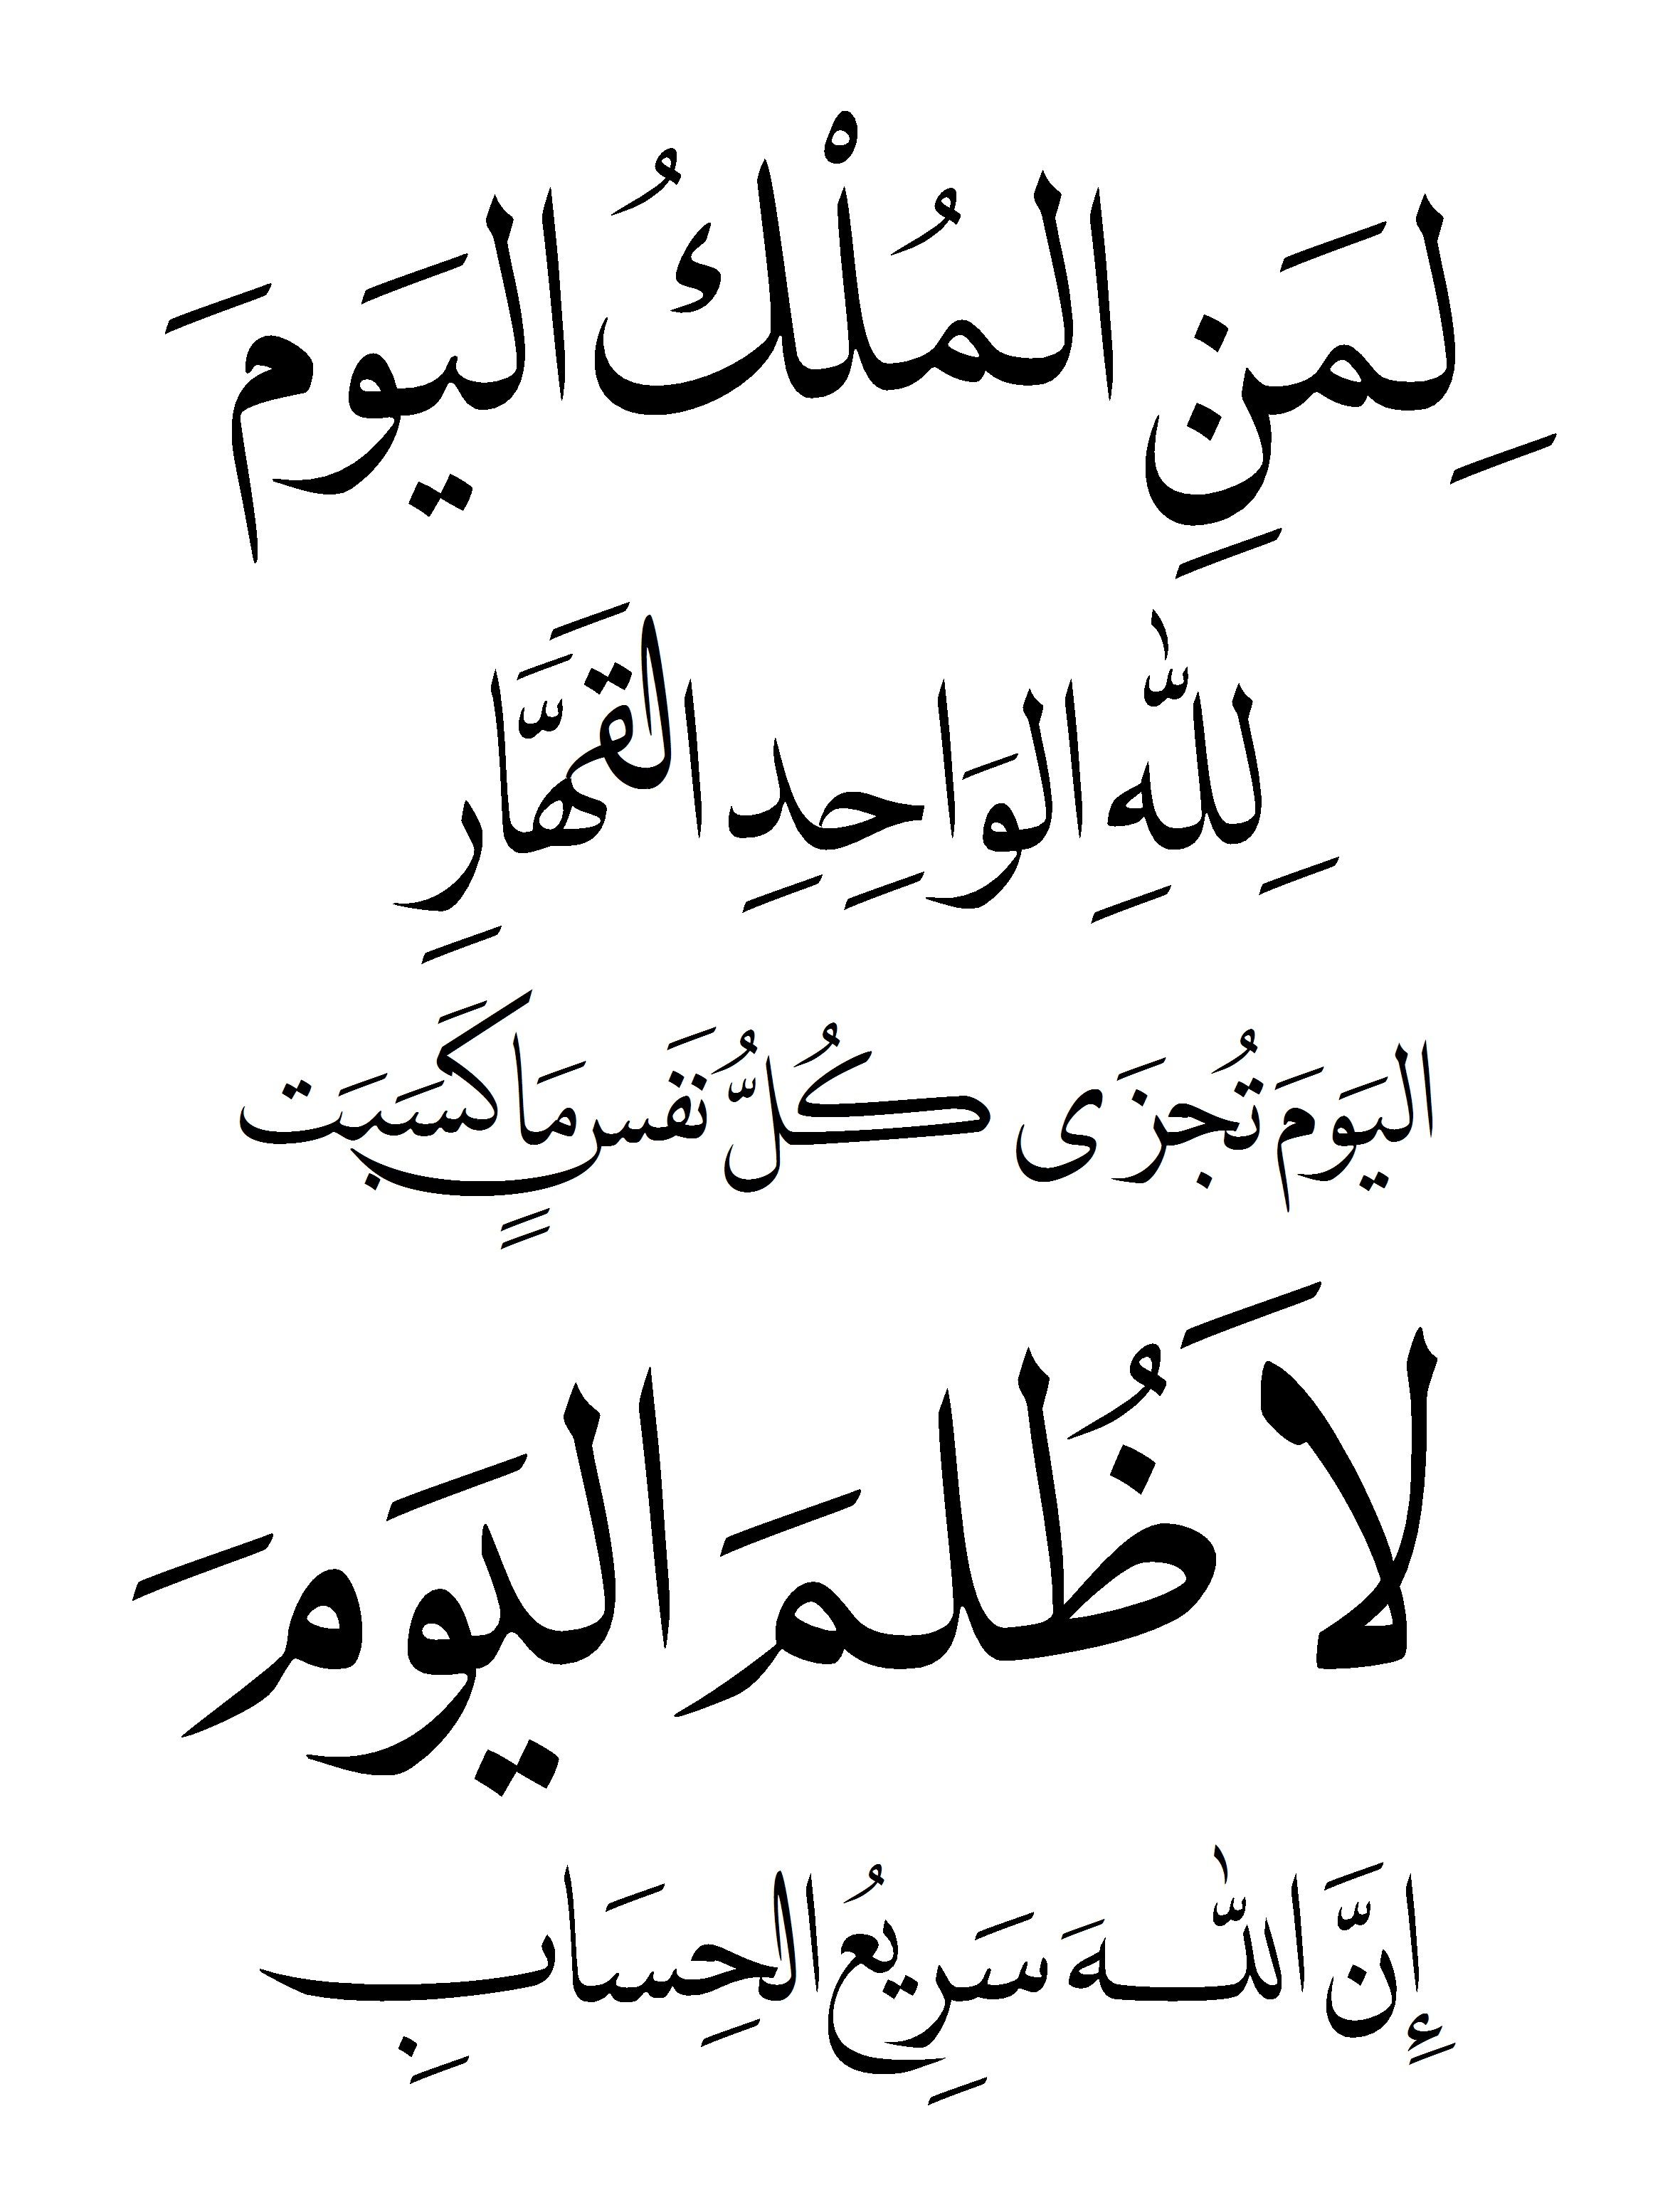 لِمَنِ المُلْكُ اليَوَمَ
لِلّٰهِ الوَاحِدِ القَهَّارِ
اليَوَمَ تُجزَى كُلُّ نَفَسٍ مَا كَسَبَت
لاَ ظُلمَ اليَومَ
إِنَّ اللّٰهَ سَرِيعُ الحِسَابِ